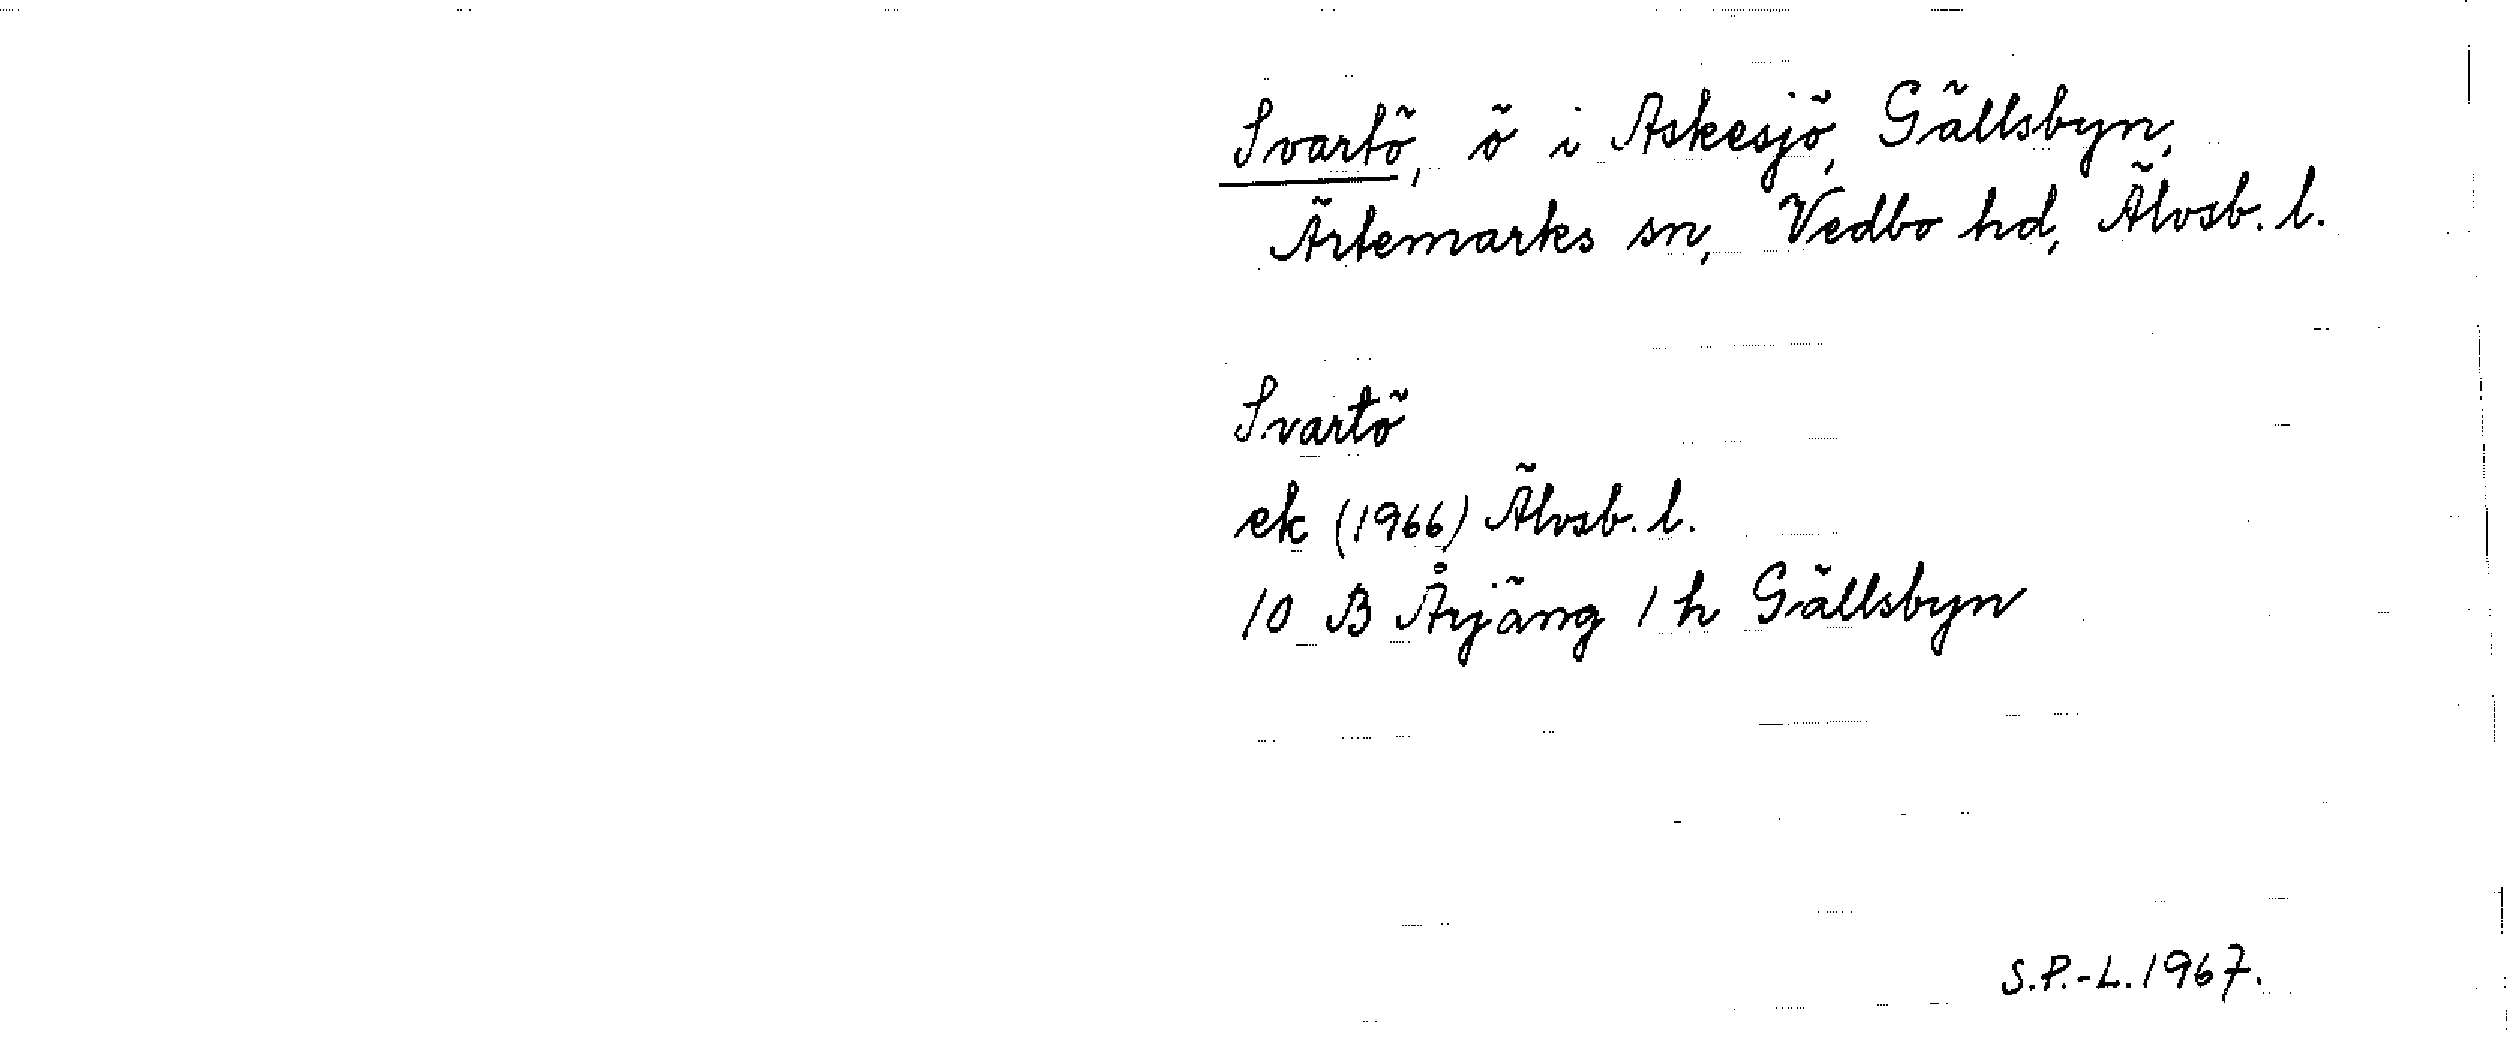 Svartö, ö i Askesjö, Gällsbyn,
Ärtemarks sn, Vedbo hd, Älvsb. l.
Svartö
ek (1966) Älvsb. l.
10 B Årjäng 1 h Gällsbyn
S.P.-L. 1967.